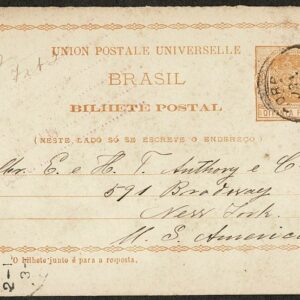 UNION POSTALE UNIVERSELLE
BRASIL
BILHETE POSTAL
(NESTE LADO SÓ SE ESCREVE O ENDEREÇO)
E. e H. T. Anthony e C
591 Broadway
New York.
U. S. America
O bilhete junto é para a resposta.